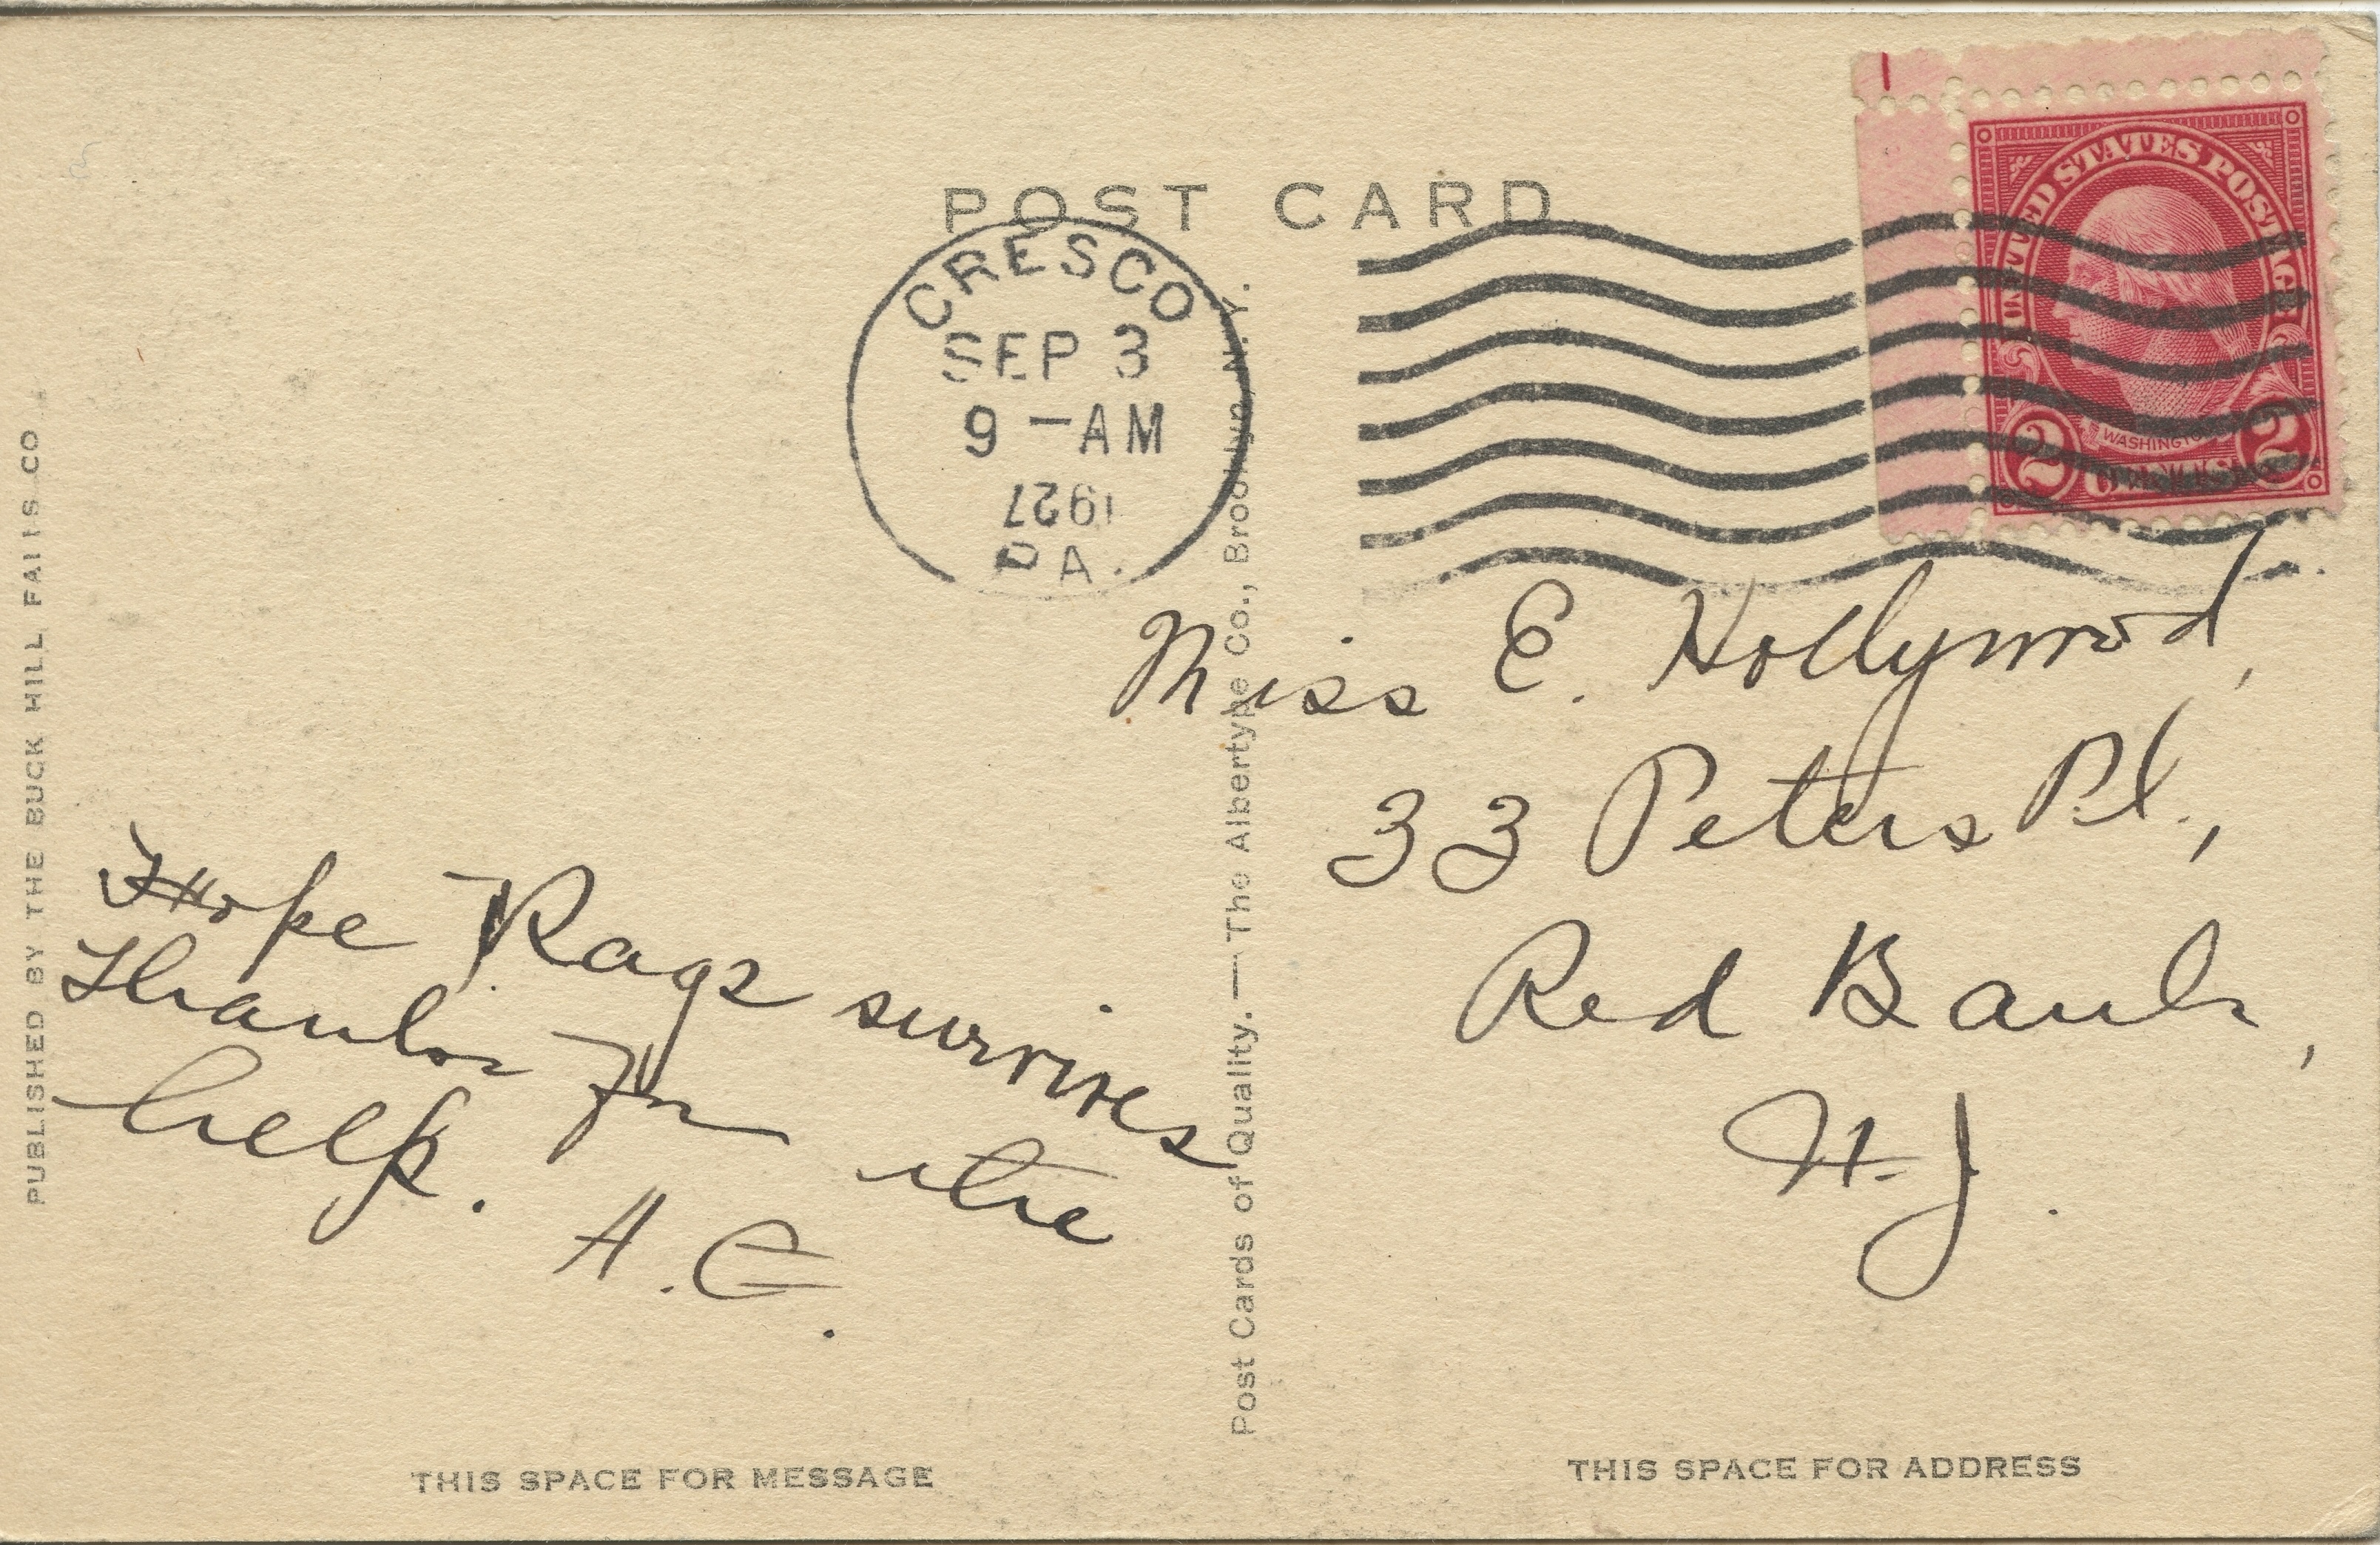 POST CARD
CRESCO
SEP 3
9 -AM
1927
PA.
UNITED STATES POSTAGE
WASHINGTON
2 2
Miss E. Hollywood,
33 Peters Pl.,
Red Bank,
N.J.
Hope Rags survives
Thanks for the
help.
A. C.
PUBLISHED BY THE BUCK HILL FALLS CO.
Post Cards of Quality. — The Albertype Co., Brooklyn, N. Y.
THIS SPACE FOR MESSAGE
THIS SPACE FOR ADDRESS